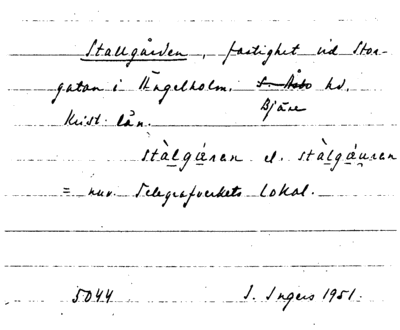 Stallgården, fastighet vid Stor-
gatan i Ängelholm. S. Åsbo hd.
Bjäre
Krist. län.
stàlgǻren el. stàlgáuren
= nuv. Telegrafverkets lokal.
5044 I. Ingers 1951.